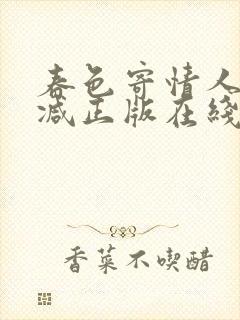 春色寄情人
减正版在线
香菜不喫醋